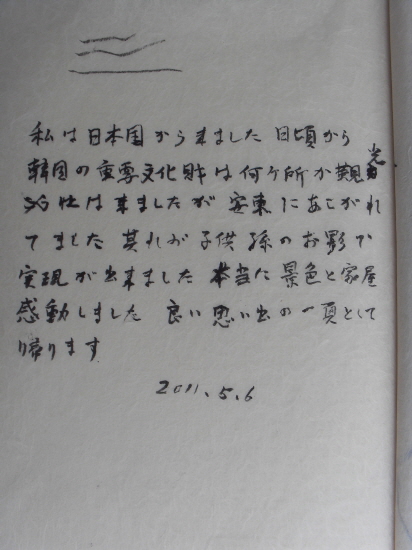 私は日本国から来ました 日頃から
韓国の重要文化財は何ヶ所か観光
は来ましたが 安東にあこがれ
てました 其れが子供孫のお影で
実現が出来ました 本当に景色と家屋
感動しました 良い思い出の一頁として
帰ります
2011.5.6